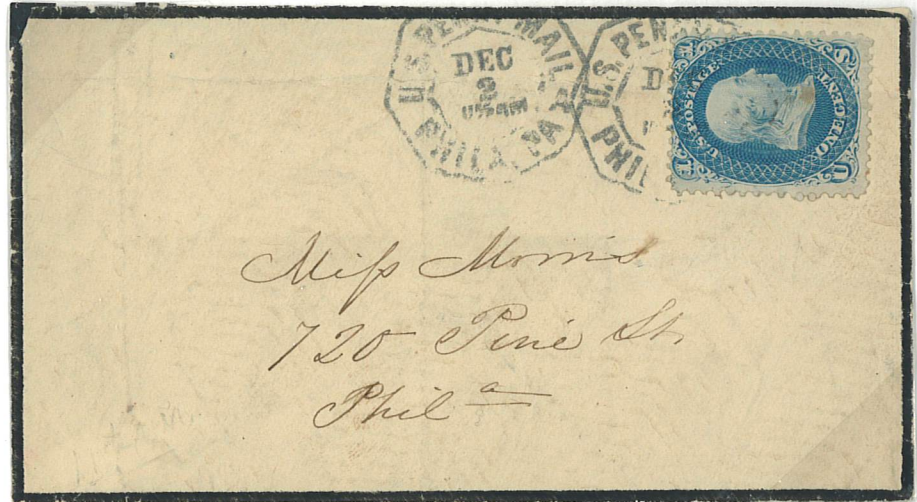 U.S. PENNY MAIL
DEC
2
PHILA. PA
U.S. PEN
D
PHIL
U.S. POSTAGE.
ONE CENT
U S
Miſs Morris
720 Pine St.
Phil ᵃ